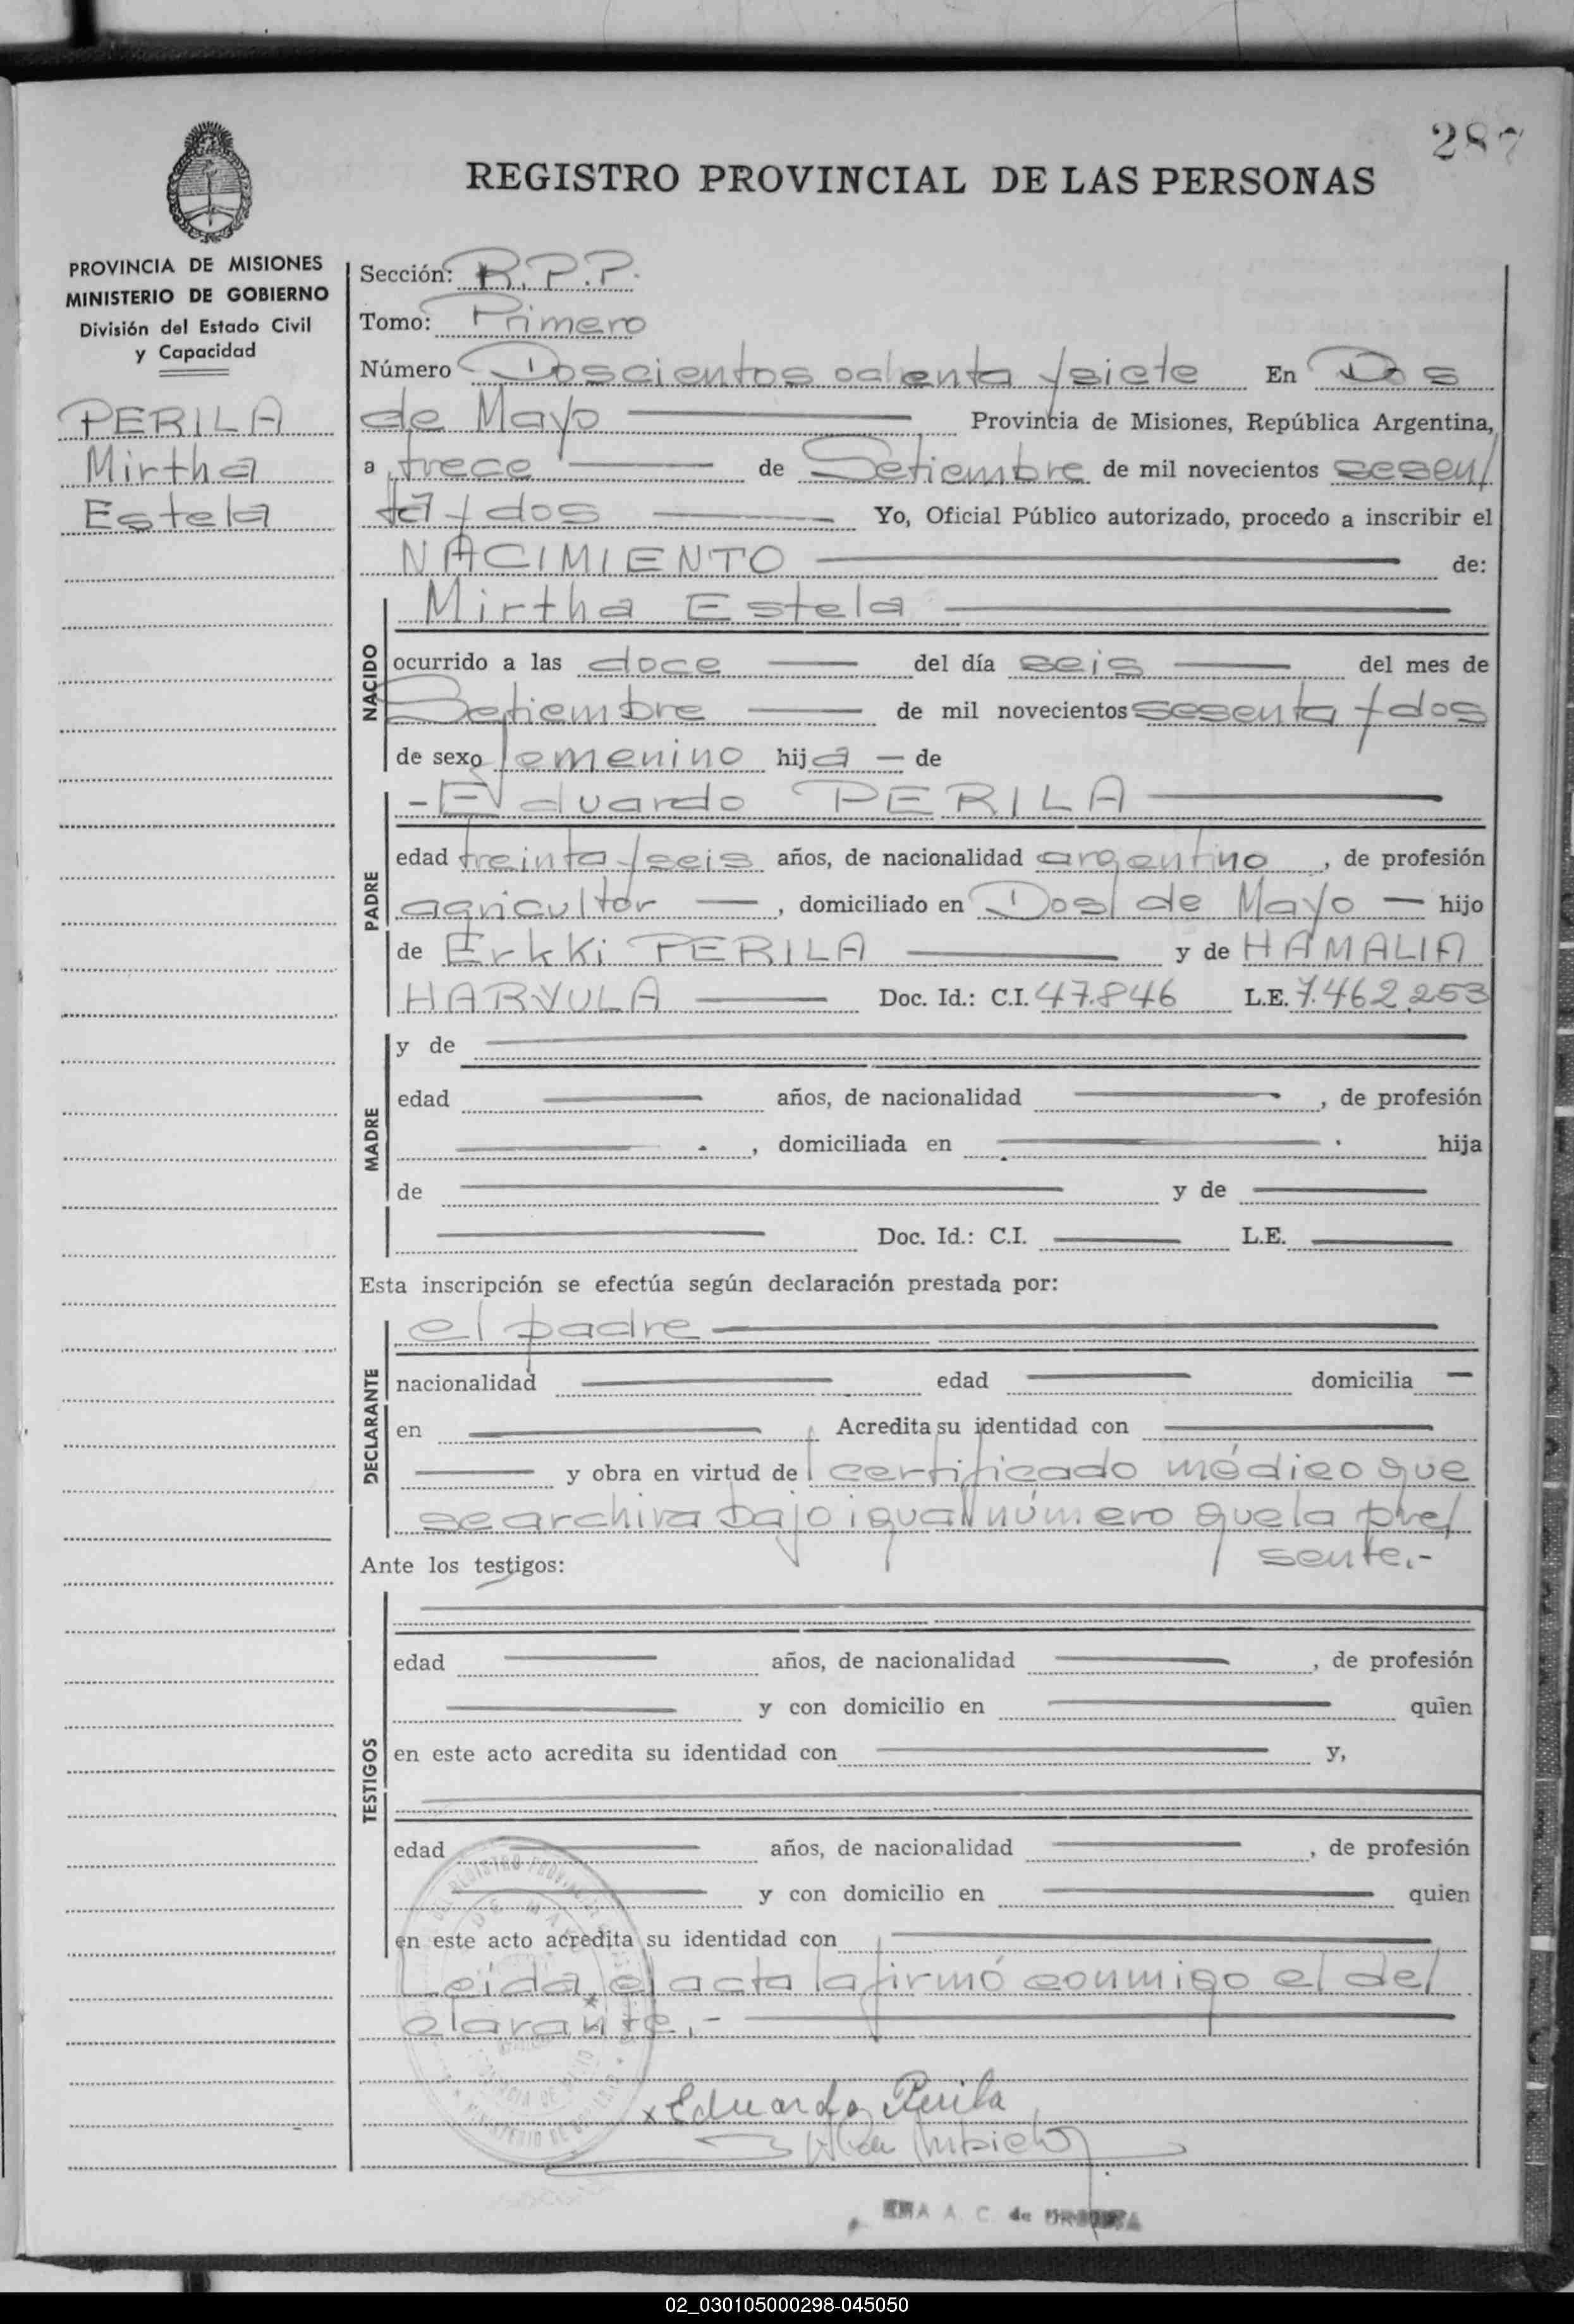 287
REGISTRO PROVINCIAL DE LAS PERSONAS
PROVINCIA DE MISIONES
MINISTERIO DE GOBIERNO
División del Estado Civil
y Capacidad
PERILA
Mirtha
Estela
Sección: R.P.P.
Tomo: Primero
Número Doscientos ochenta y siete En Dos
de Mayo Provincia de Misiones, República Argentina,
a trece de Setiembre de mil novecientos sesen/
ta y dos Yo, Oficial Público autorizado, procedo a inscribir el
NACIMIENTO de:
NACIDO
Mirtha Estela
ocurrido a las doce del día seis del mes de
Setiembre de mil novecientos sesenta y dos
de sexo femenino hija — de
PADRE
- Eduardo PERILA
edad treinta y seis años, de nacionalidad argentino, de profesión
agricultor —, domiciliado en Dos de Mayo — hijo
de Erkki PERILA y de HAMALIA
HARVULA Doc. Id.: C.I. 47.846 L.E. 7.462.253
MADRE
y de
edad años, de nacionalidad , de profesión
, domiciliada en hija
de y de
Doc. Id.: C.I. L.E.
Esta inscripción se efectúa según declaración prestada por:
DECLARANTE
el padre
nacionalidad edad domicilia —
en Acredita su identidad con
y obra en virtud de certificado médico que
se archiva bajo igual número que la pre/
sente.-
Ante los testigos:
TESTIGOS
edad años, de nacionalidad , de profesión
y con domicilio en quien
en este acto acredita su identidad con y,
edad años, de nacionalidad , de profesión
y con domicilio en quien
en este acto acredita su identidad con
Leída el acta la firmó conmigo el de/
clarante.-
x Eduardo Perila
A. C. de
02_030105000298-045050